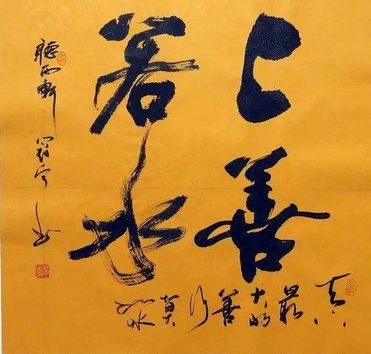 上善
若水
最大的善行莫如水
聽雨軒
书